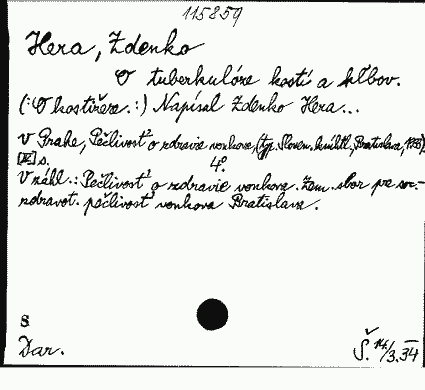 115859
Hera, Zdenko
O tuberkulóze kostí a kĺbov.
(:O kostižere.:) Napísal Zdenko Hera...
V Prahe, Pečlivosť o zdravie venkova, (typ. Sloven. kníhtl., Bratislava, 1933).
s. 4°.
V záhl.: Pečlivosť o zdravie venkova. Zem. sbor pre soc.-
zdravot. pečlivosť venkova Bratislava.
S
Dar.
Š. 14/3.34